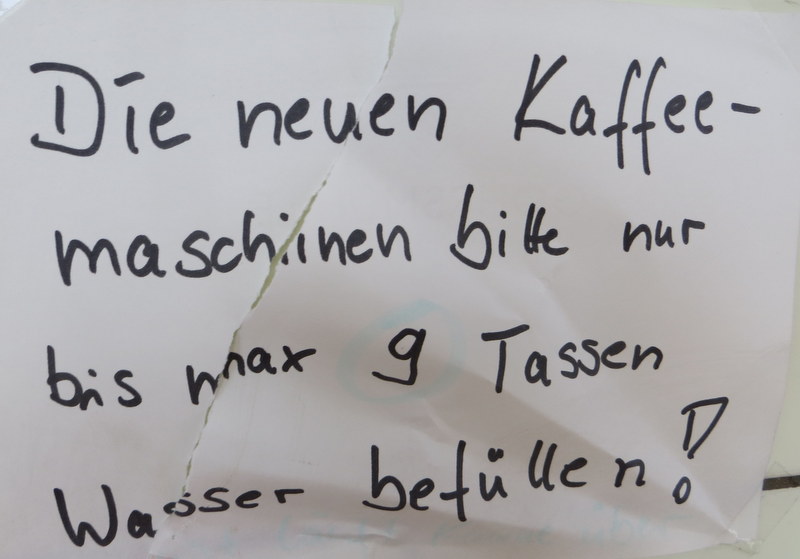 Die neuen Kaffee-
maschinen bitte nur
bis max 9 Tassen
Wasser befüllen!